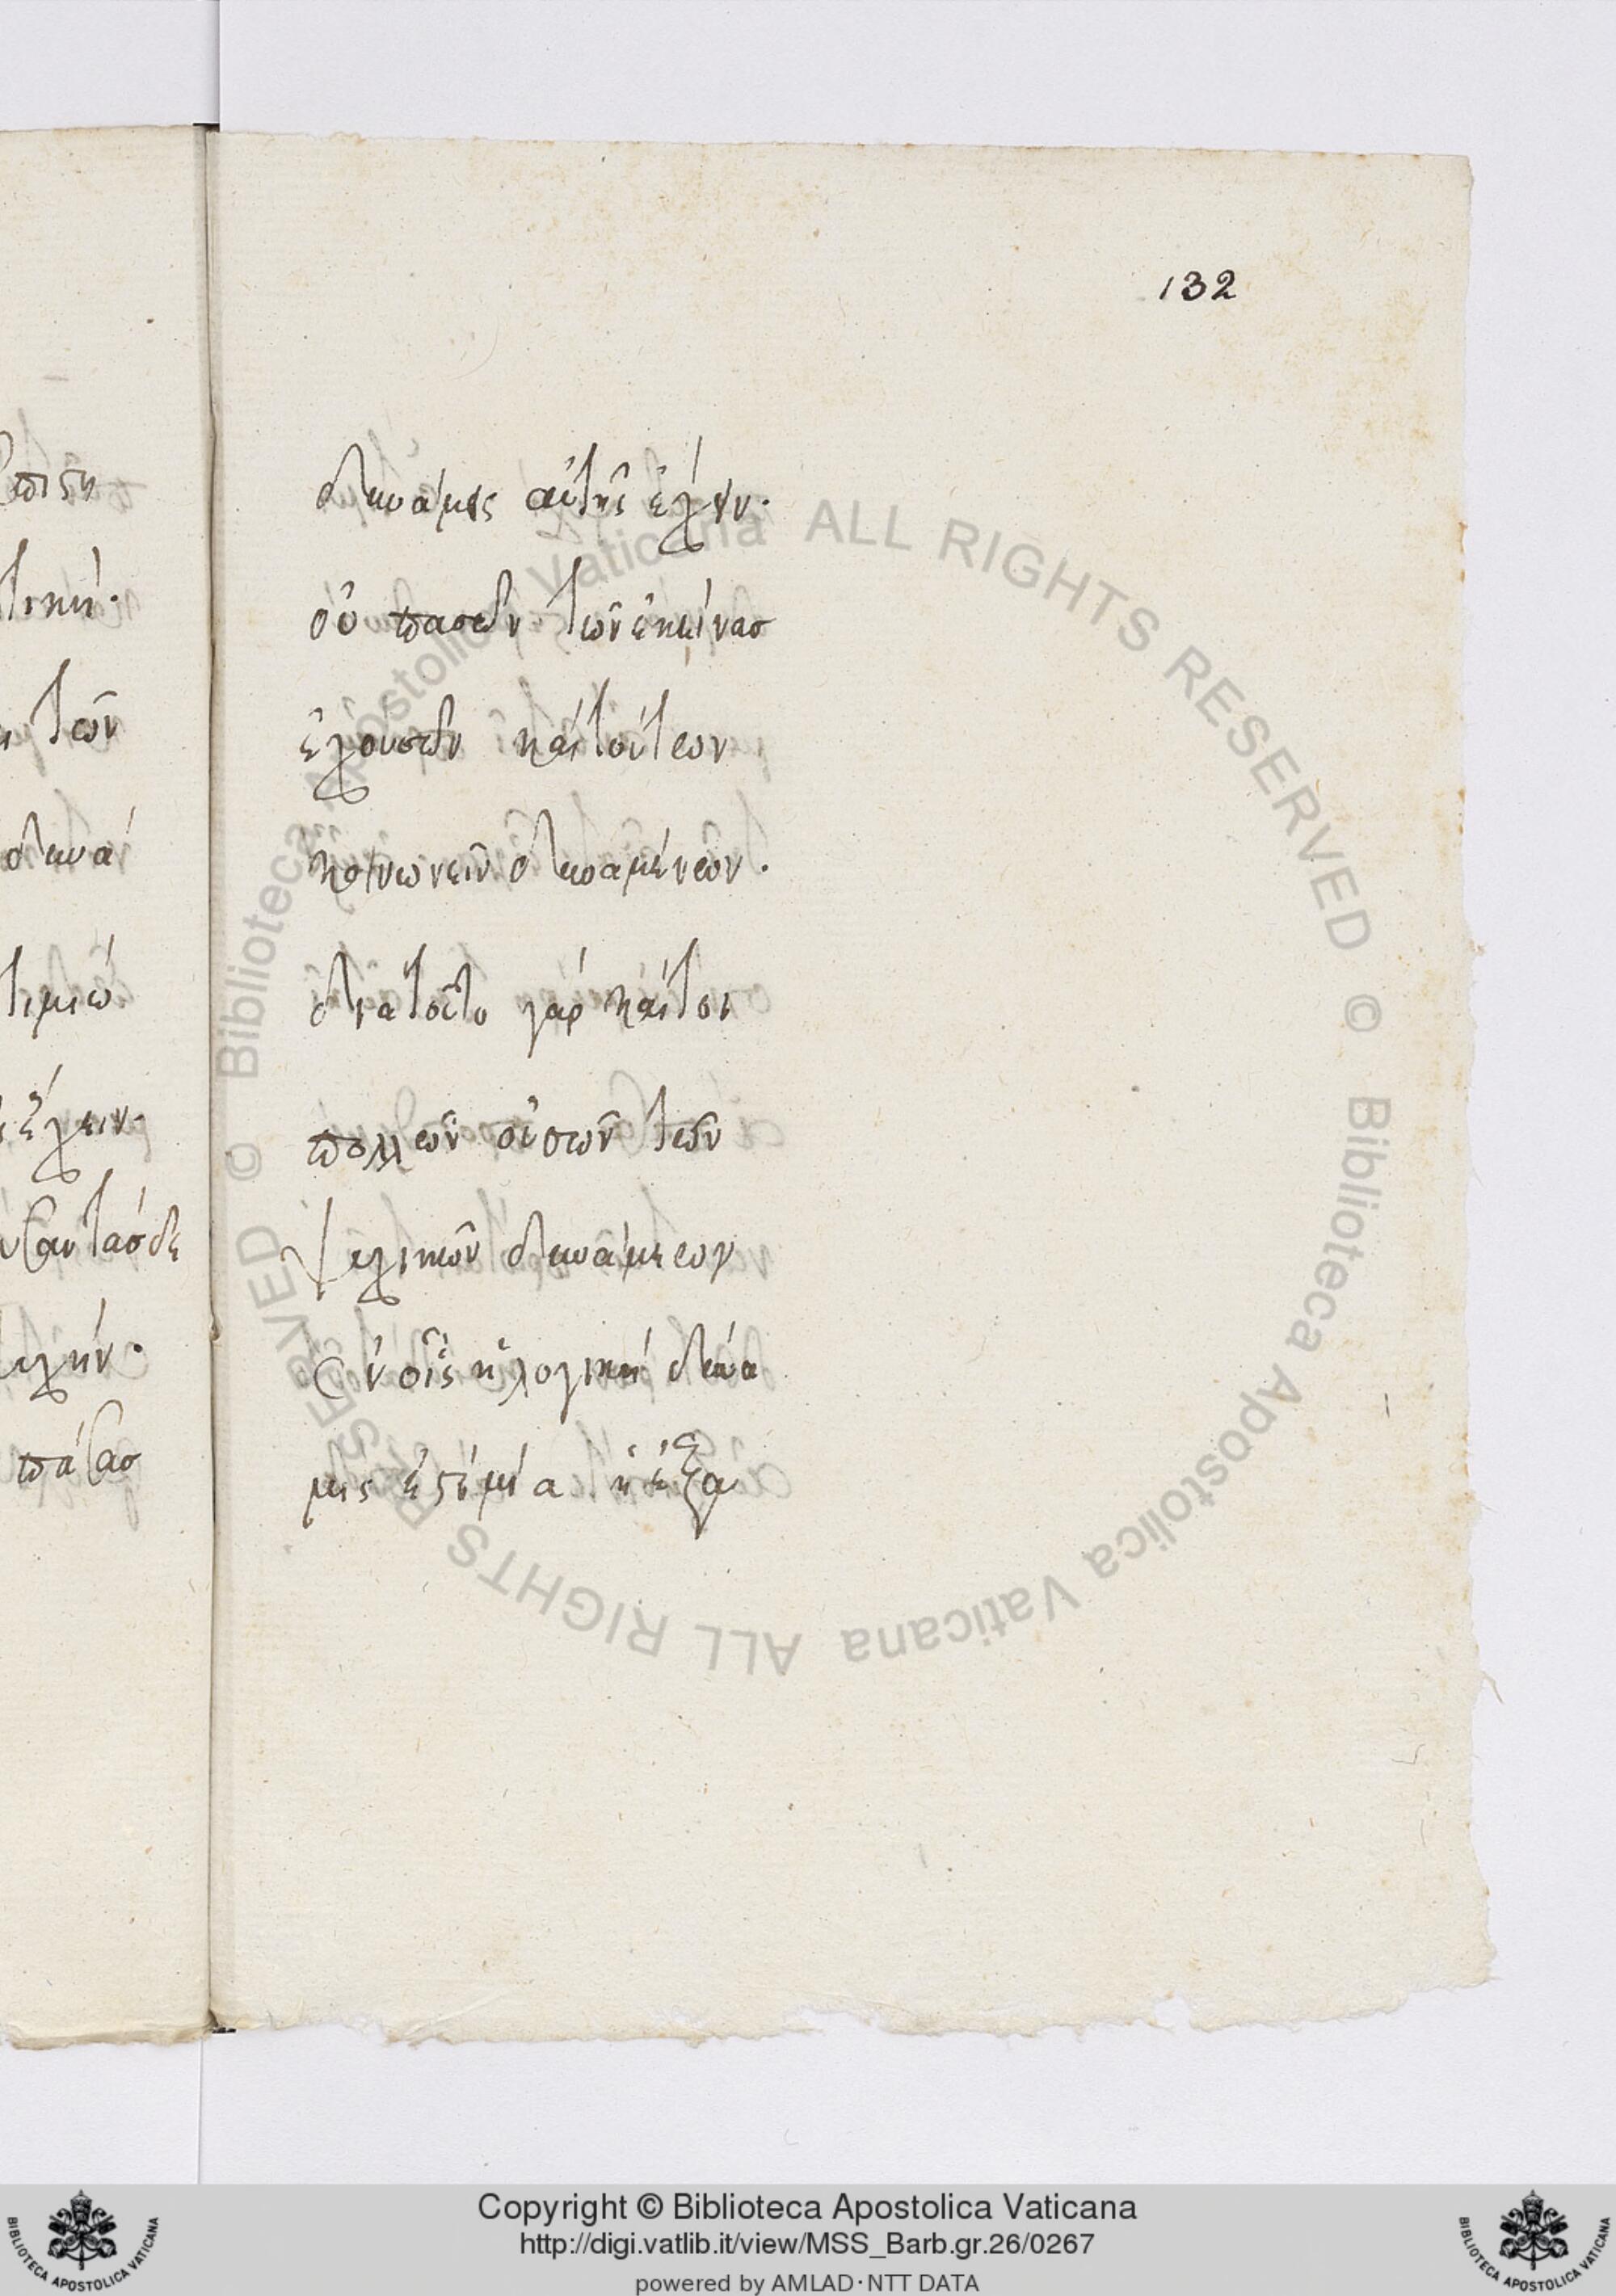 132
δυνάμεις αὐτῆς ἔχειν·
οὐ πασῶν τῶν ἐκείνας
ἐχουσῶν καὶ τούτων
κοινωνεῖν δυναμένων·
διατοῦτο γὰρ καίτοι
πολλῶν οὐσῶν τῶν
ψυχικῶν δυνάμεων
ἐν οἷς ἡ λογικὴ δύνα
μις ἐστὶ μία ἡ ἐξαι
πιστη
τικὴ·
τῶν
δυνά
τιμιώ
ἔχειν·
σαυτασδε
πάσας
Biblioteca Apostolica Vaticana ALL RIGHTS RESERVED ©
Biblioteca Apostolica Vaticana ALL RIGHTS RESERVED ©
Copyright © Biblioteca Apostolica Vaticana
http://digi.vatlib.it/view/MSS_Barb.gr.26/0267
powered by AMLAD·NTT DATA
BIBLIOTECA APOSTOLICA VATICANA
BIBLIOTECA APOSTOLICA VATICANA